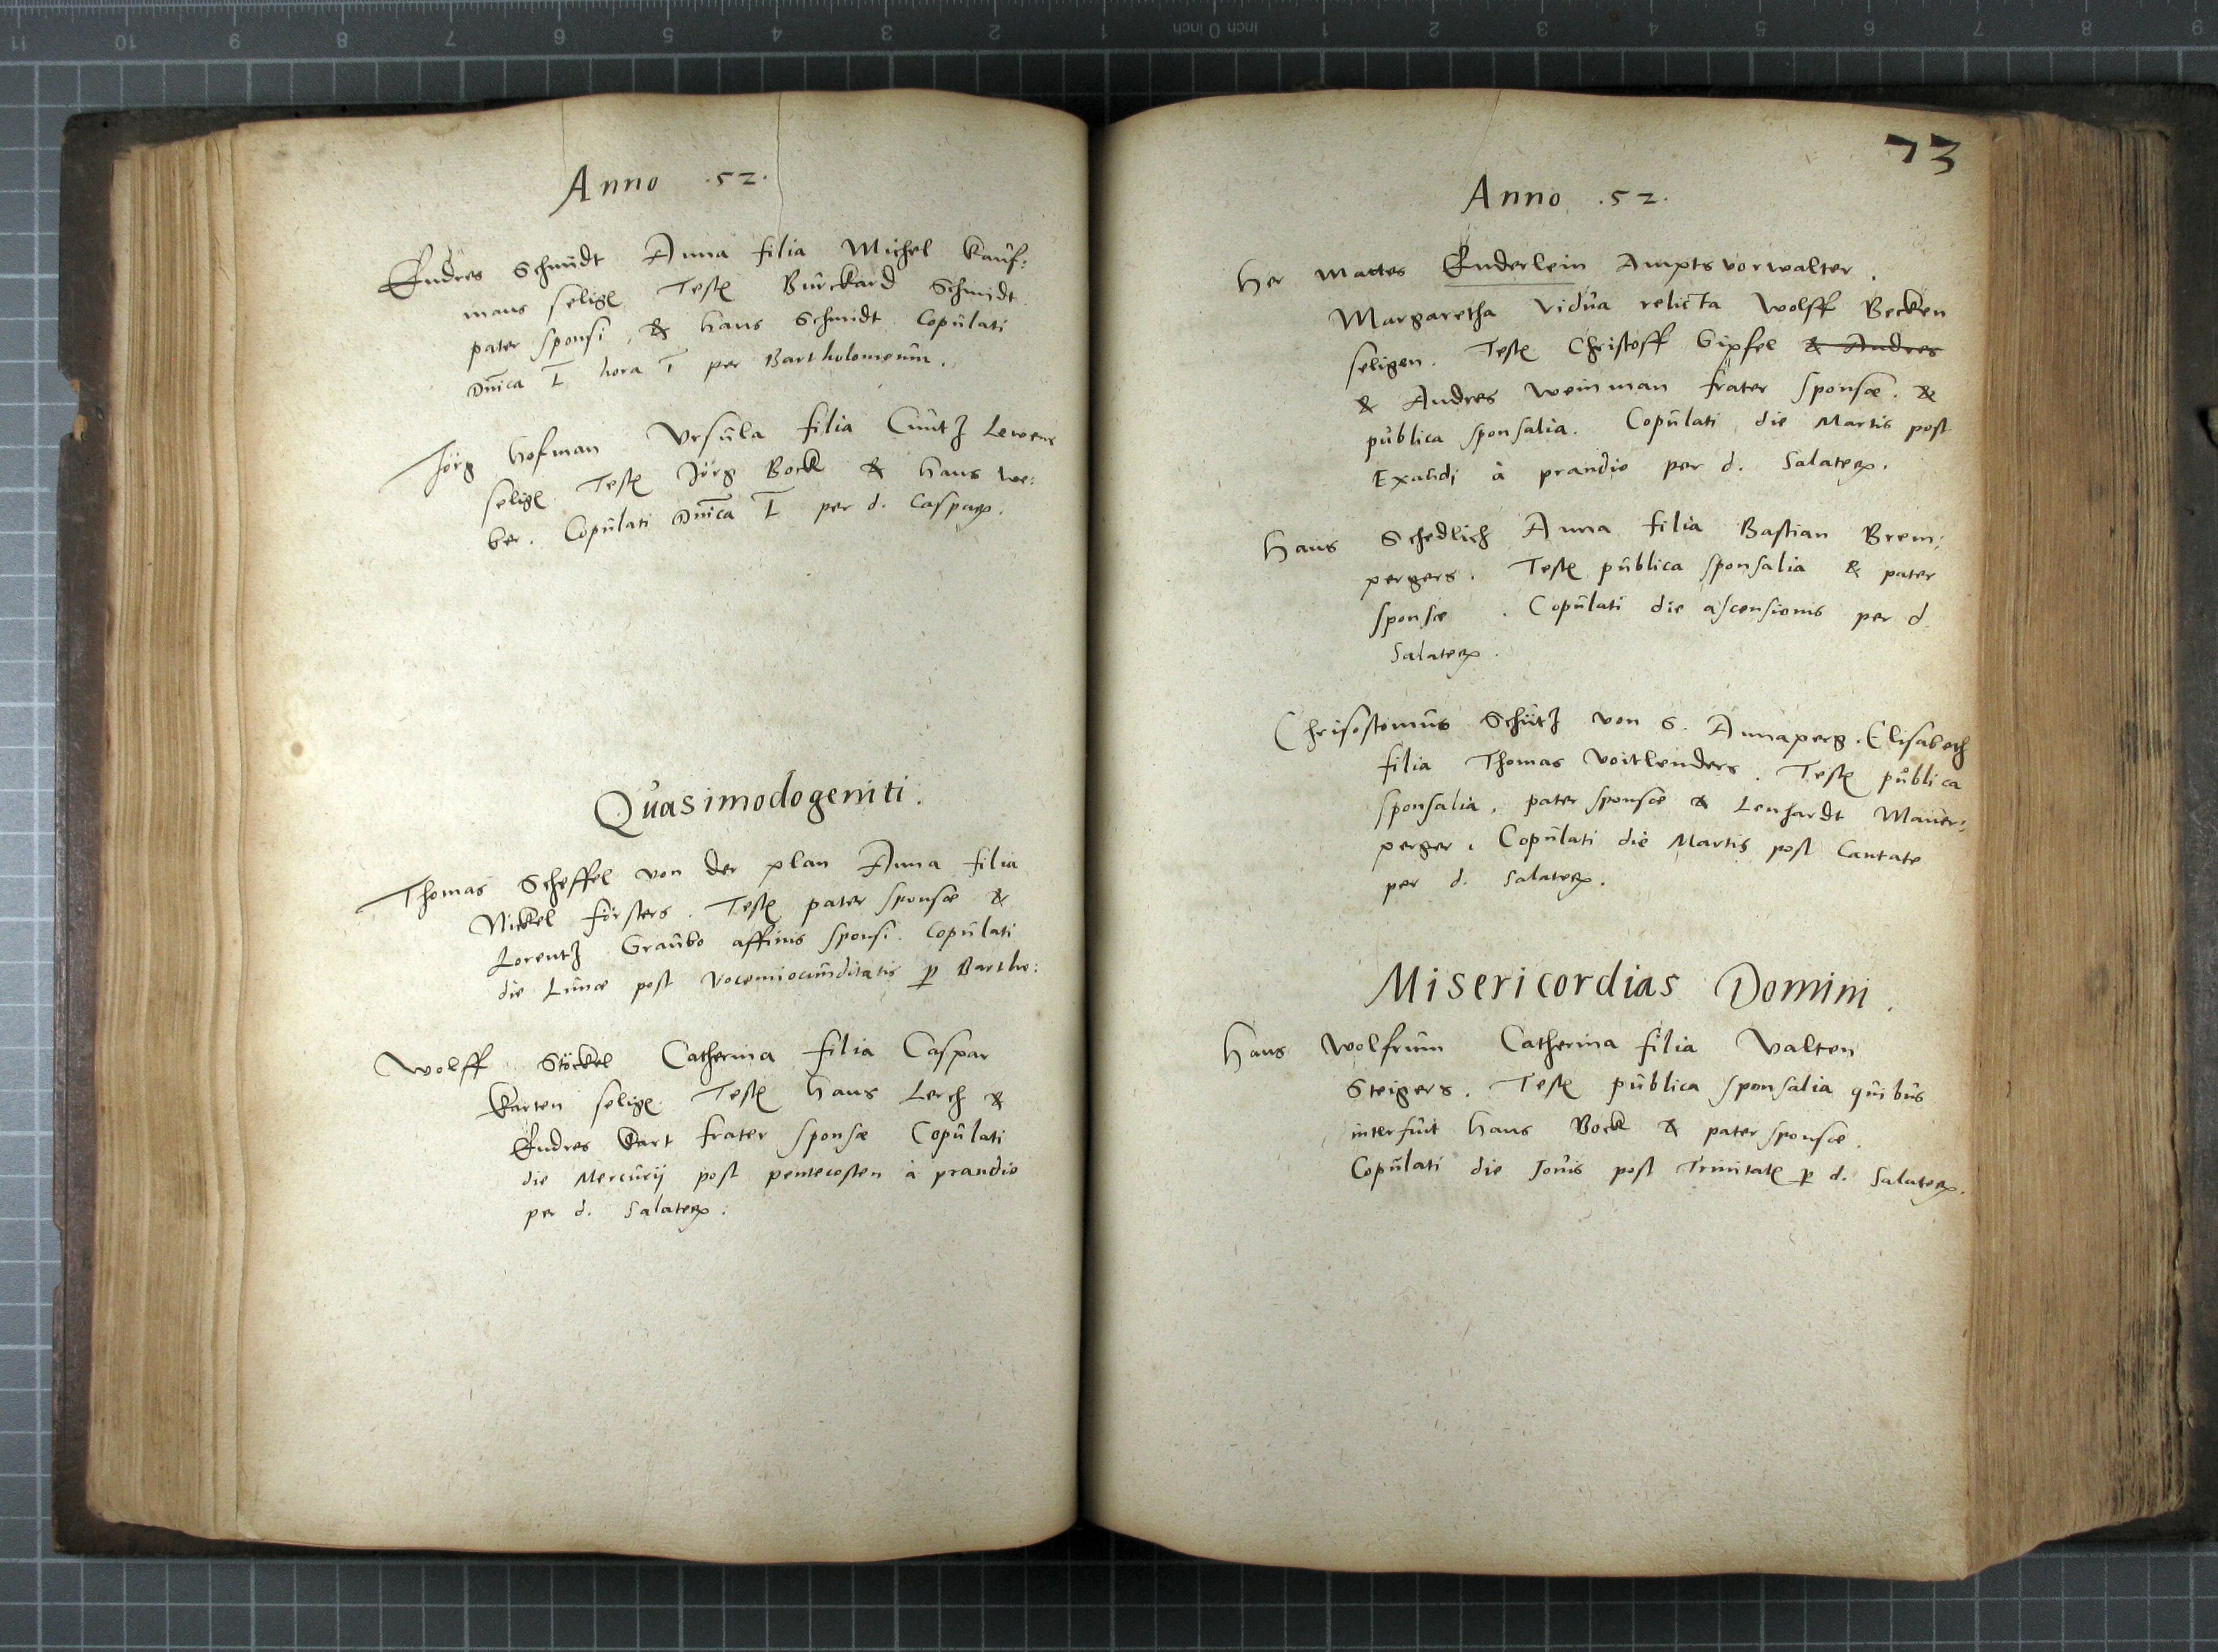 Anno .52.
Endres Schmidt Anna filia Michel Kauf:
mans selige Teste Burckard Schmidt
pater sponsi & Hans Schmidt Copulati
Dnica I hora I per Bartholomeum.
Jörg Hofman Ursula filia Cuntz Lewens
selige Teste Jörg Bock & Hans we:
ber. Copulati Dnica I per d. Caspar.
Quasimodogeniti.
Thomas Scheffel von der plan Anna filia
Nickel försters. Teste pater sponsæ &
Lorentz affinis sponsi. Copulati
die Lunæ post Vocemiocunditatis p Bartho:
Wolff Stöckel Catherina filia Caspar
Karten selige. Teste Hans Lerch &
Endres Kart frater sponsæ Copulati
die Mercurij post pentecosten à prandio
per d. Salater.
73
Anno .52.
Her Mattes Enderlein Amptsvorwalter.
Margaretha vidua relicta Wolff Becken
seligen. Teste Christoff Gipfel & Andres
& Andres Weinman frater sponsæ. &
publica sponsalia. Copulati die Martis post
Exaudi à prandio per d. Salater.
Hans Schedlich Anna filia Bastian Brem:
pergers. Teste publica sponsalia & pater
sponsæ. Copulati die ascensionis per d.
Salater.
Chrisostomus Schütz von S. Annaperg. Elisabeth
filia Thomas Voitlenders. Teste publica
sponsalia, pater sponsæ & Lenhardt Mauer:
perger. Copulati die Martis post Cantate
per d. Salater.
Misericordias Domini.
Hans Wolfrum Catherina filia Valten
Steigers. Teste publica sponsalia quibus
interfuit Hans Bock & pater sponsæ.
Copulati die Jovis post Trinitate p d. Salater.
11 10 9 8 7 6 5 4 3 2 1 inch 0 inch 1 2 3 4 5 6 7 8 9